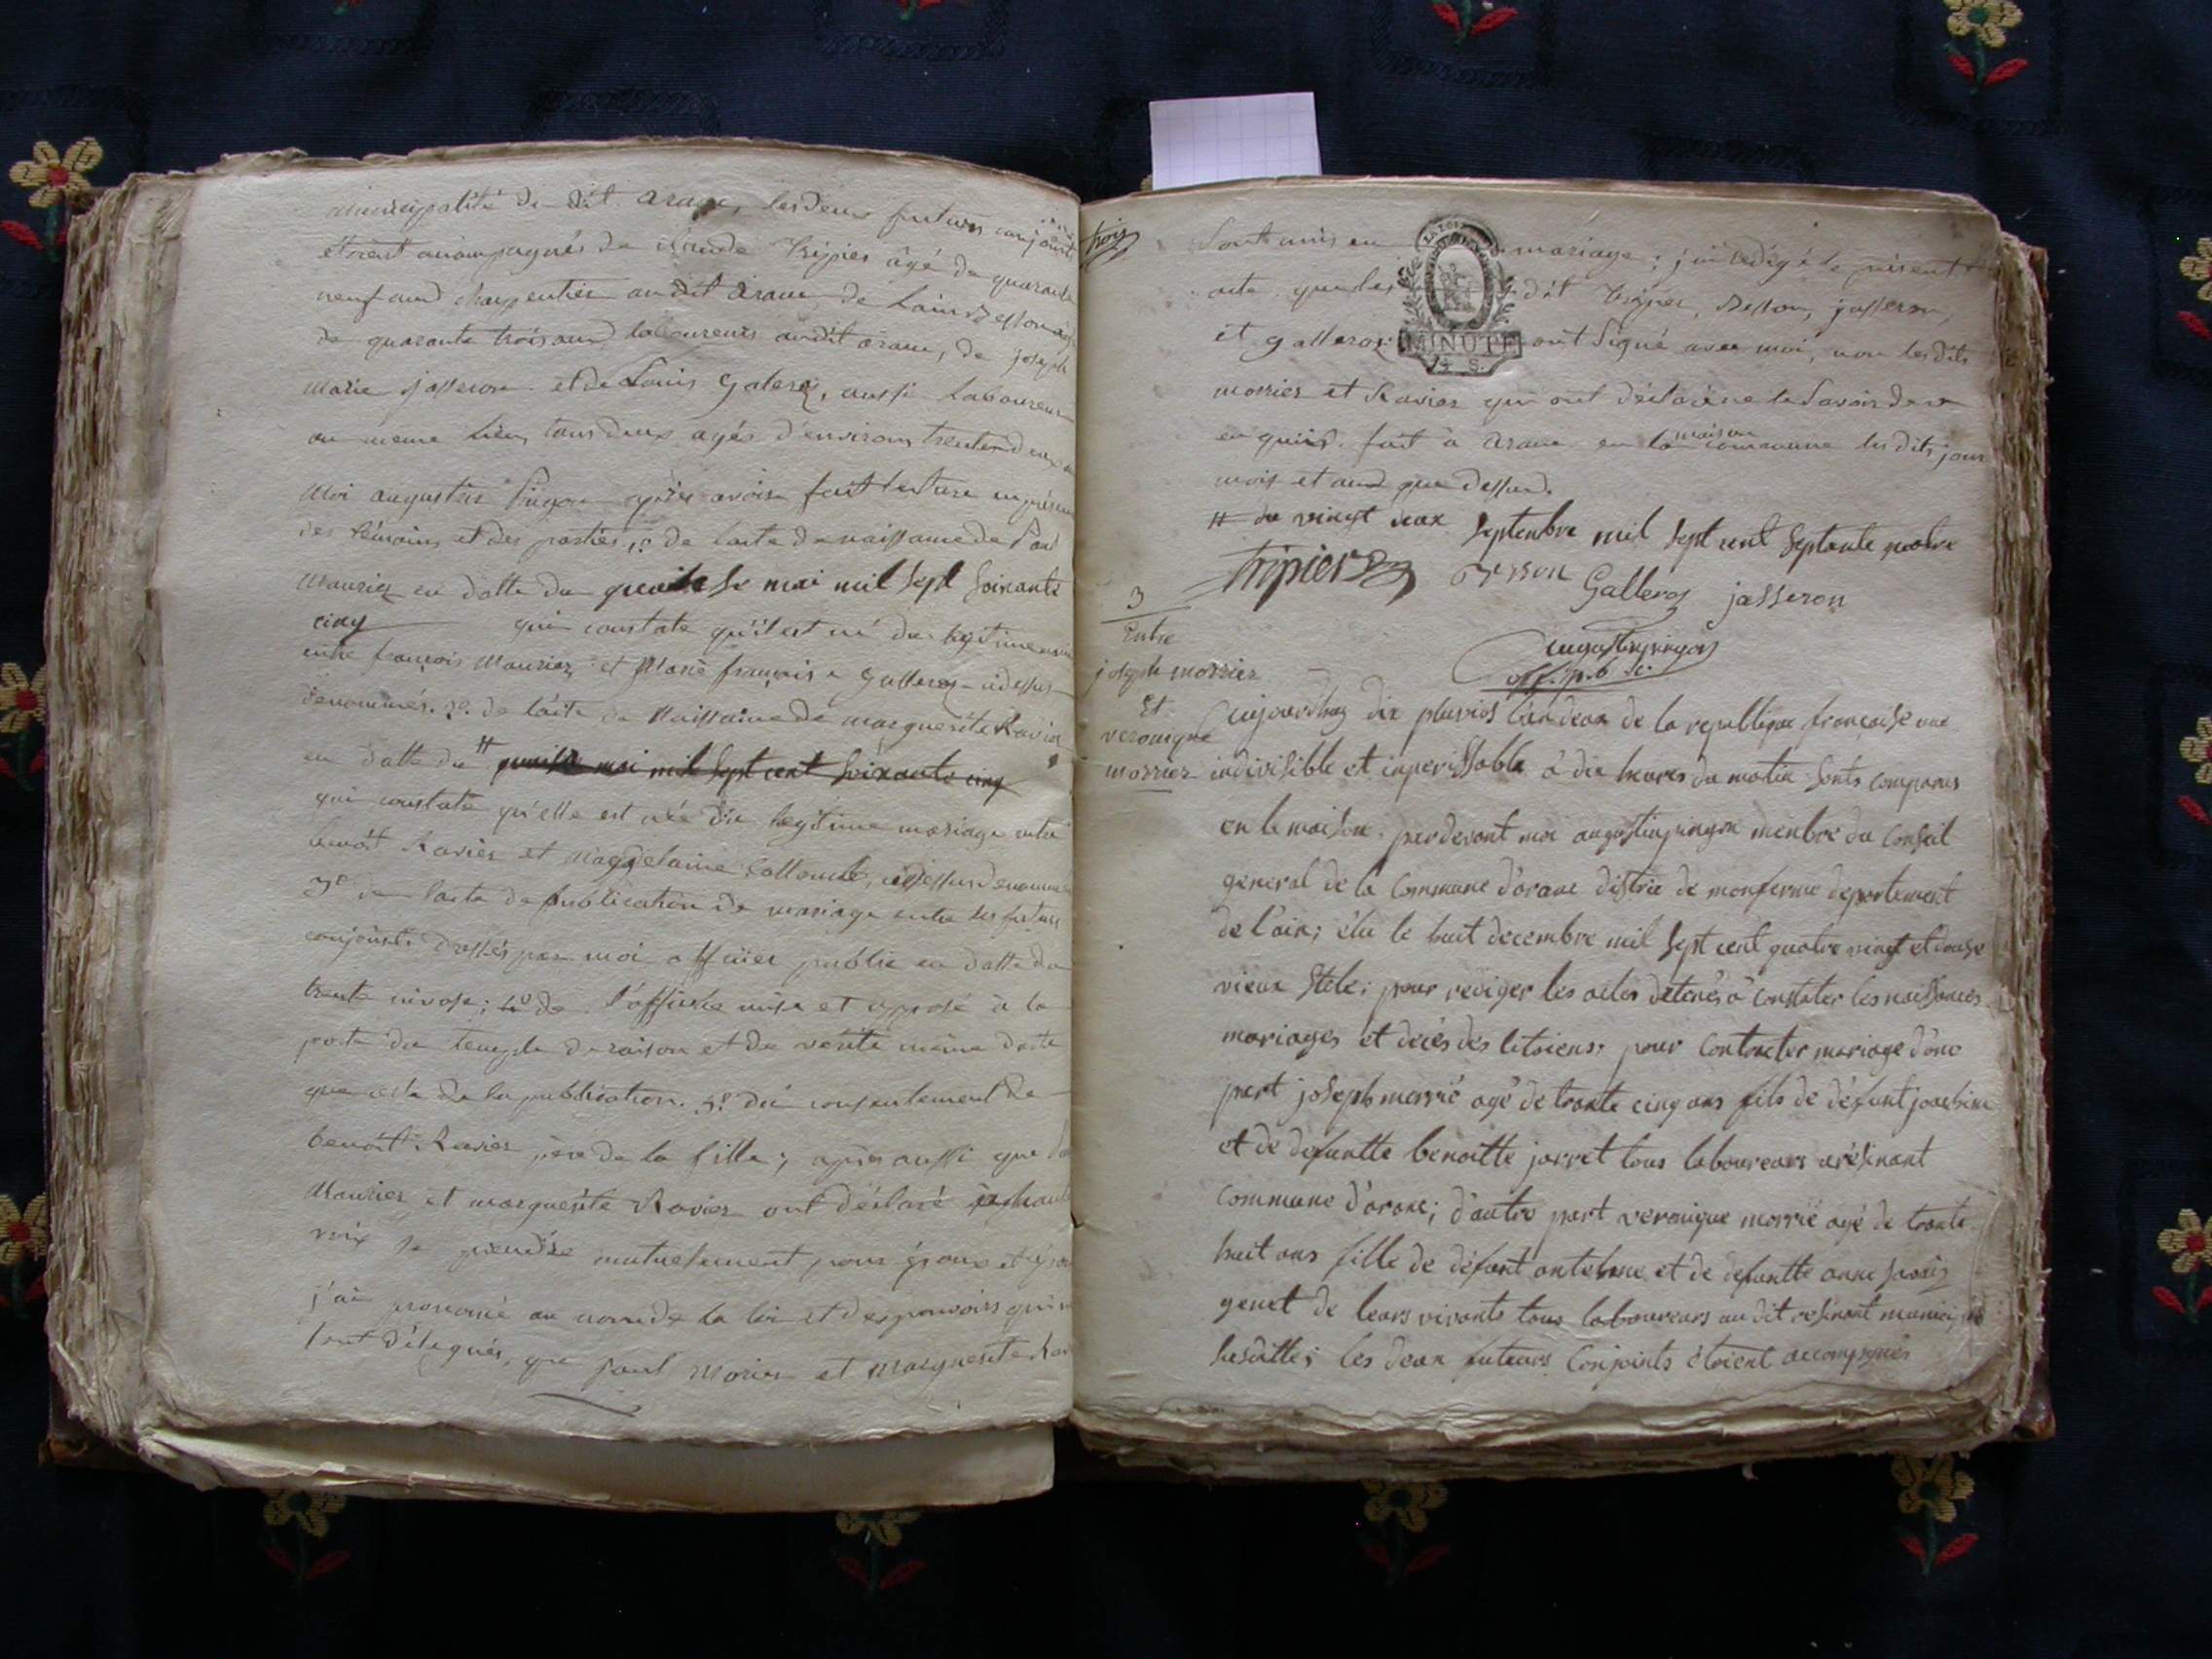 municipalité du dit aranc, les deux futurs conjoints
étoient accompagnés de claude tripier âgé de quarante
neuf ans charpentier audit aranc, de Louis Besson âgé
de quarante trois ans laboureurs audit aranc, de joseph
marie josseron et de Louis galleroz, aussi laboureur
au meme lieu, tous deux agés d'environ trente deux
Moi augustin Pingon après avoir fait lecture en présence
des témoins et des parties, 1° de l'acte de naissance de Paul
Maurier en datte du quinze mai mil sept soixante
cinq qui constate qu'il est né du legitime
entre françois Maurier et Marie françoise Galleroz cidessus
denommés. 2°. de l'acte de Naissance de marguerite Ravier
en datte du # quinze mai mil sept cent soixante cinq
qui constate qu'elle est née du legitime mariage entre
benoit Ravier et Magdelaine Collomb, cidessus denommés
3° de l'acte de publication de mariage entre les futurs
conjoints dressés par moi officier public en datte du
trente nivose; 4° de l'affiche mise et apposé à la
porte du temple de raison et de verité même date
que celle de la publication. 5° du consentement de
benoit Ravier père de la fille; après aussi que
Maurier et marguerite Ravier ont déclaré à haute
voix se prendre mutuellement pour époux et
j'ai prononcé au nom de la loi et des pouvoirs qui
sont délegués, que paul Morier et marguerite
trois
sont unis en mariage; j'ai rédigé le présent
acte que les dit tripier, Besson, josseron,
et galleroz MINUTE ont signé avec moi, non les dits
morrier et Ravier qui ont déclaré ne le savoir de
ce quis. fait à aranc en la maison commune les dits jour
mois et and que dessus.
# du vingt deux septembre mil sept cent septante quatre
tripier Besson Galleroz josseron
augustin pingon
off. p.b.
3
Entre
joseph morrier
Et
veronique
morrier
aujourdhuy dix pluvios l'an deux de la republique françoise une
indivisible et inperissable à dix heures du matin sonts comparus
en le maison. pardevant moi augustin pingon menbre du Conseil
general de la Commune d'aranc distric de monferme departement
de l'ain; élu le huit decembre mil sept cent quatre vingt et douse
vieux stile; pour rediger les actes détenés à constater les naissances
mariages et décés des citoiens; pour Contracter mariage d'une
part joseph morrié agé de trante cinq ans fils de défunt joachim
et de defuntte benoitte jarret tous laboureurs arésinant
Commune d'aranc; d'autre part veronique morrié agé de trante
huit ans fille de défunt antelme et de defuntte anne
genet de leurs vivants tous laboureurs au dit resinant
susditte; les deux futeurs Conjoints étoient accompagnés